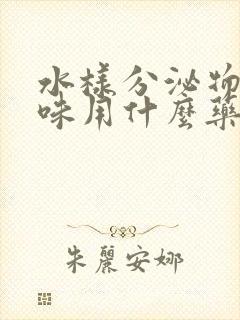 水樣分泌物
味用什麼藥
朱麗安娜